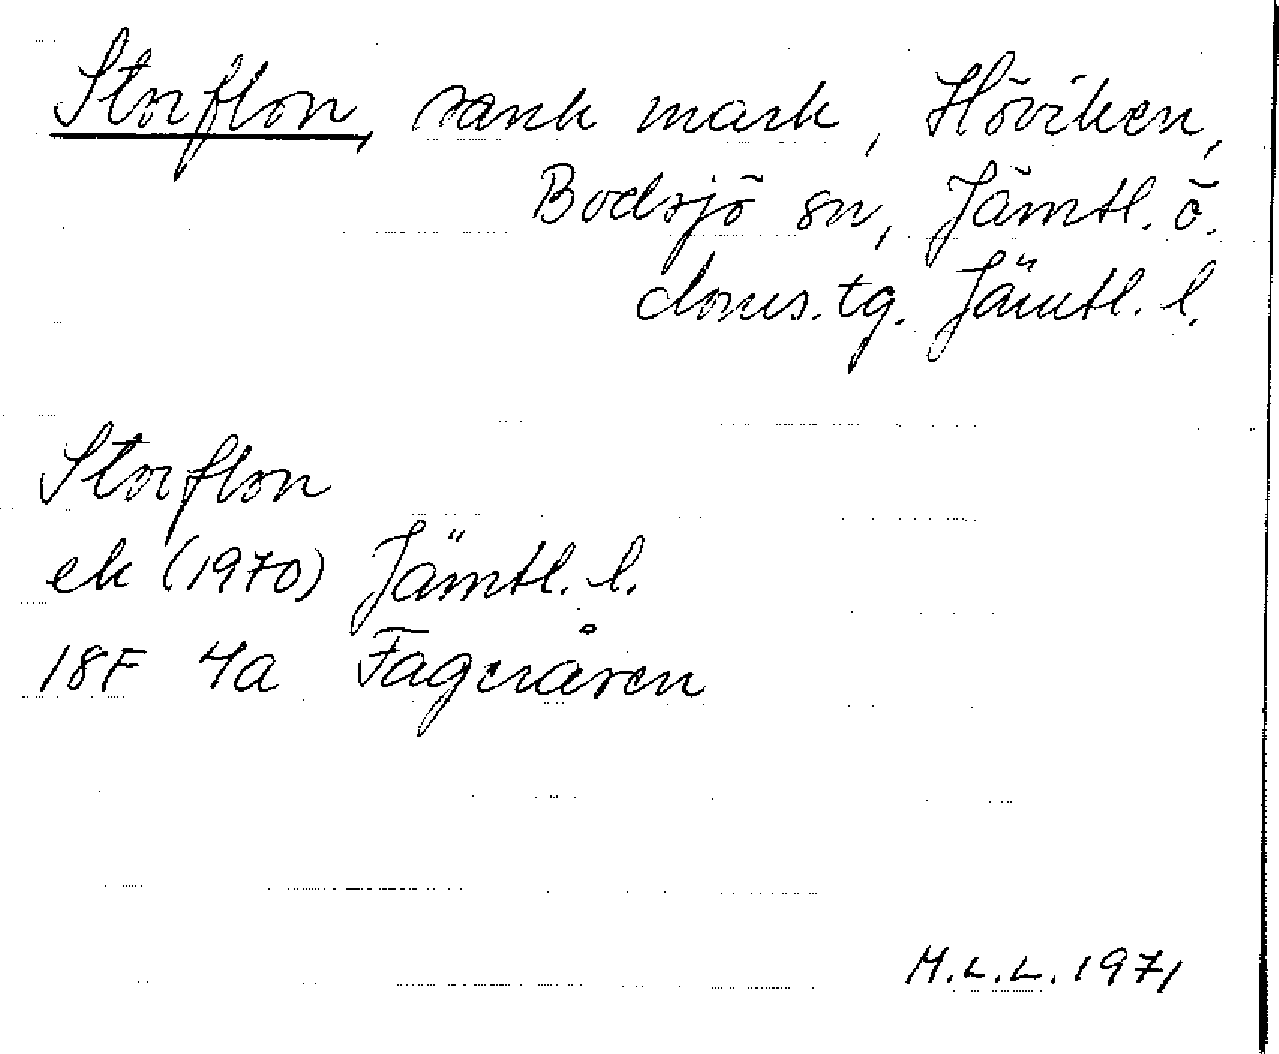 Storflon, sank mark, Höviken,
Bodsjö sn, Jämtl. ö.
doms.tg. Jämtl. l.
Storflon
ek (1970) Jämtl. l.
18F 4a Fageråren
M.L.L. 1971